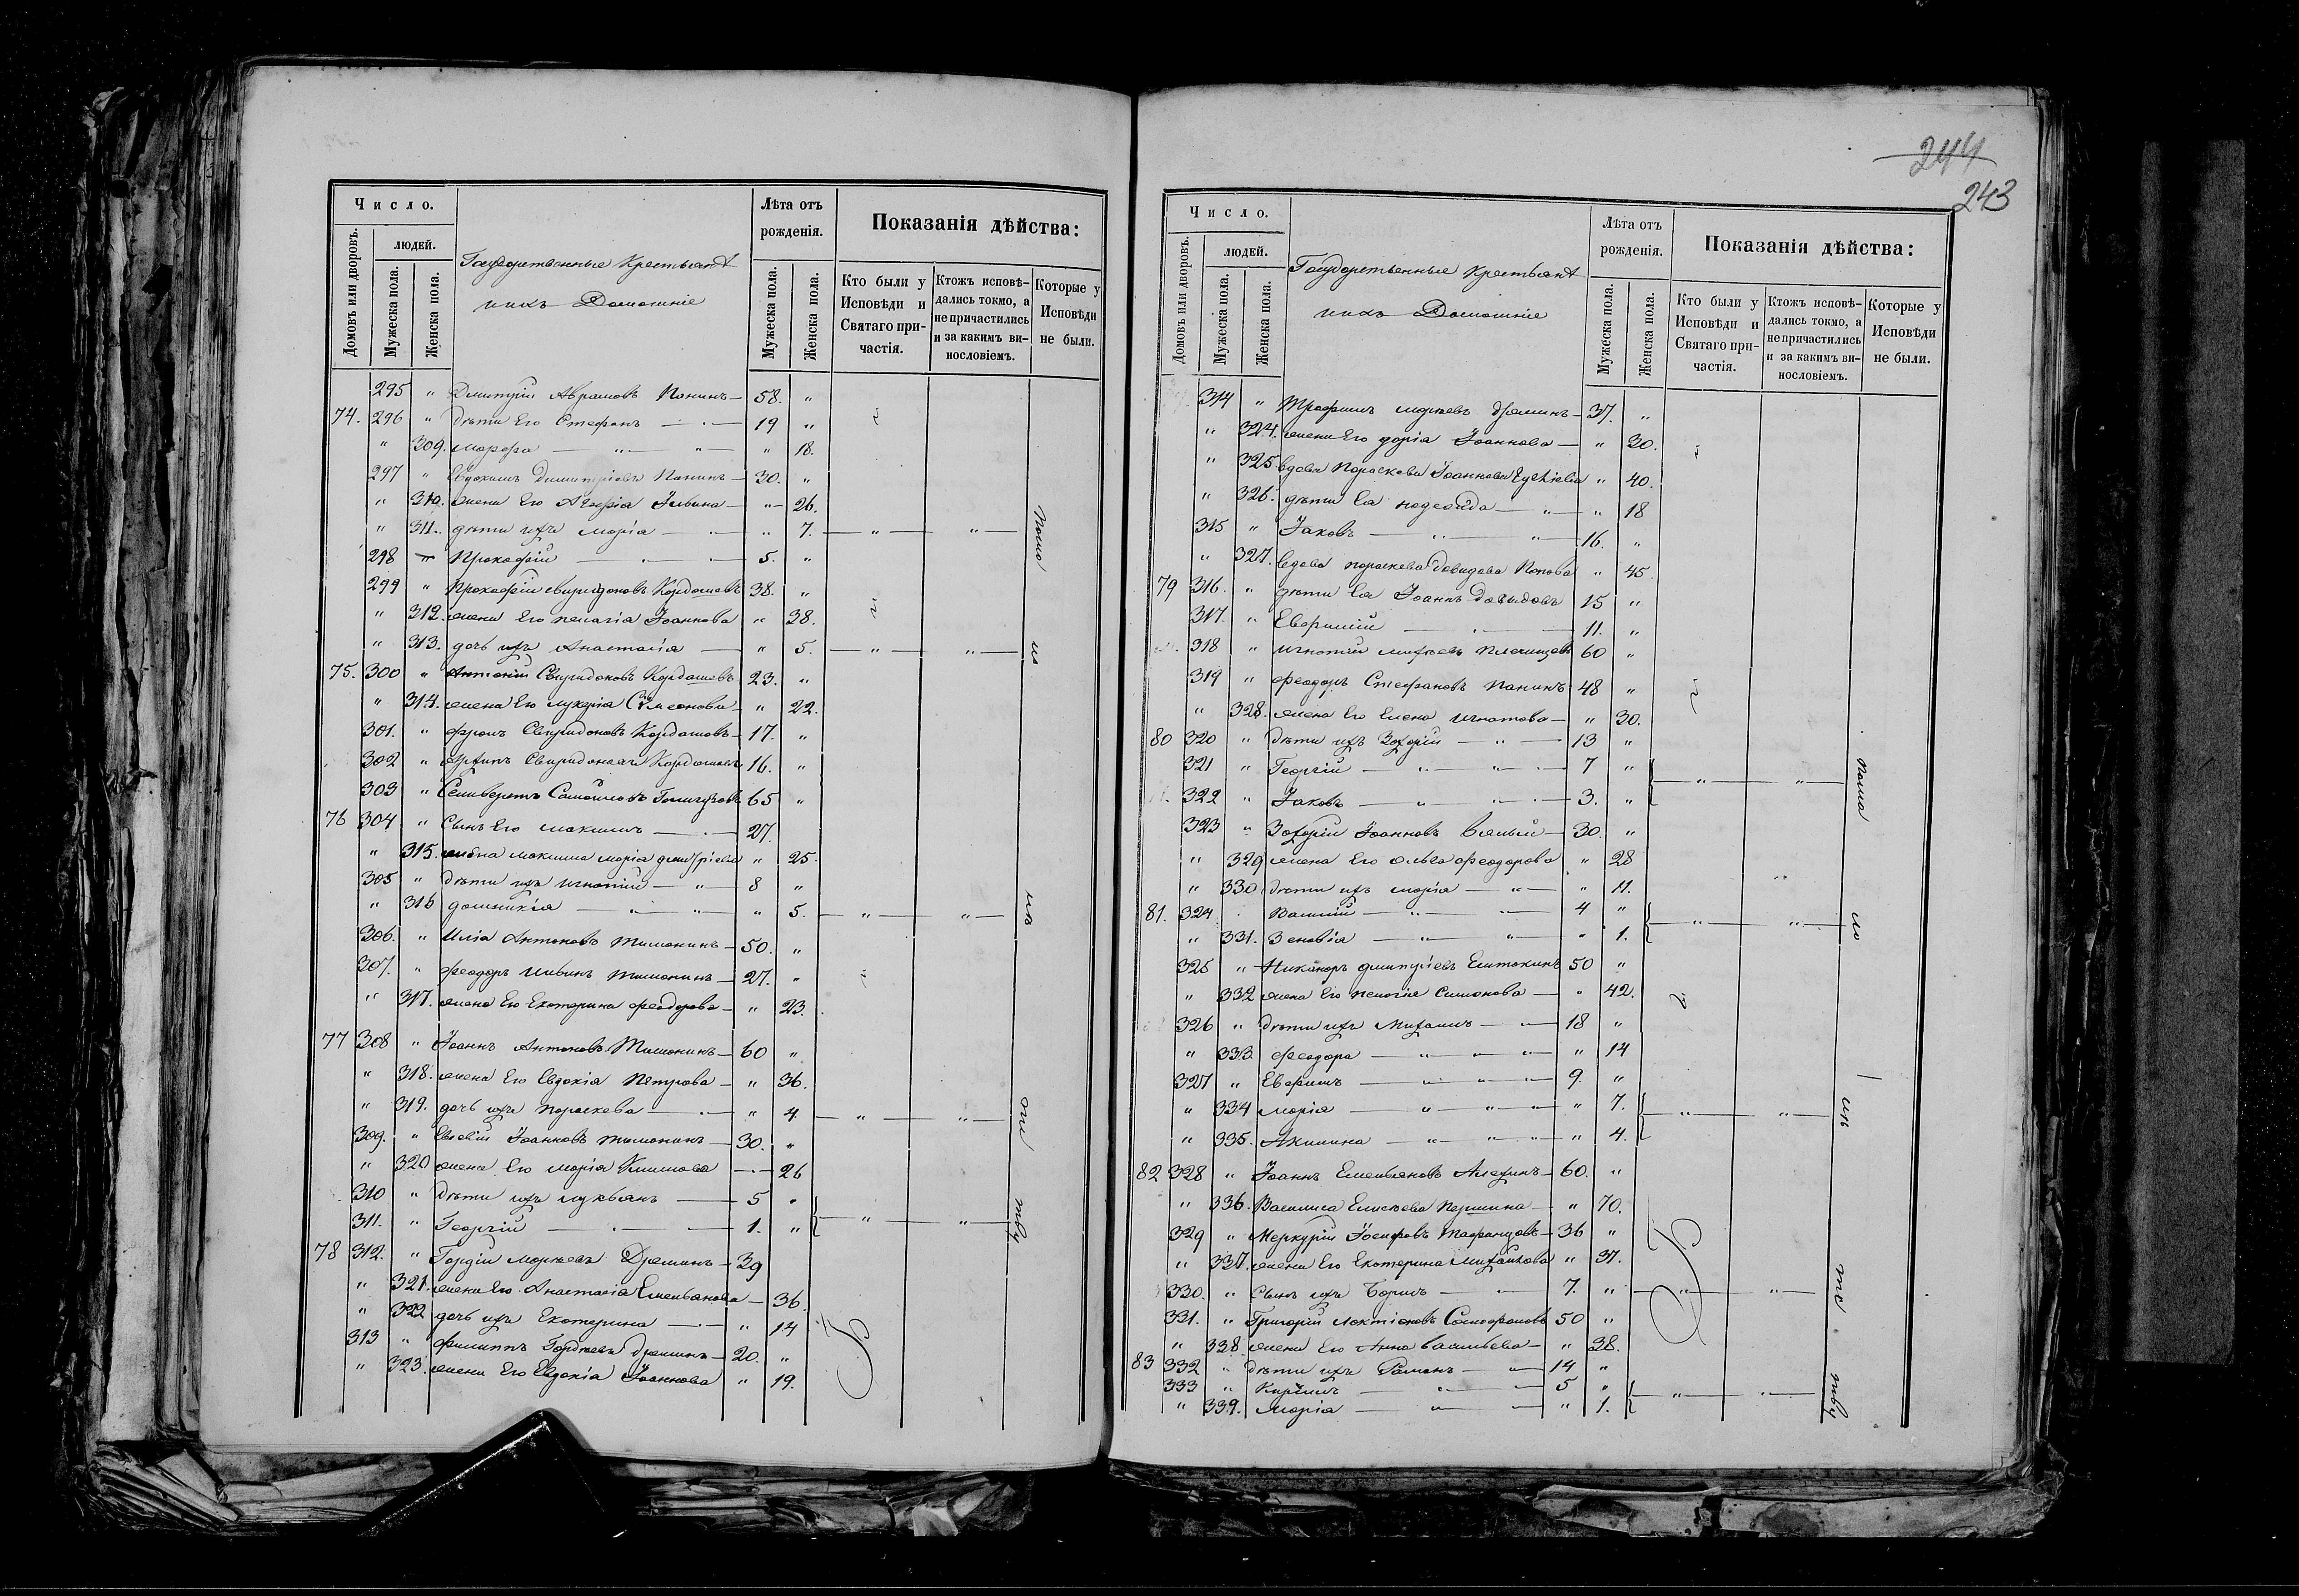 Число.
людей.
Домовъ или дворовъ.
Мужеска пола.
Женска пола.
Государственные Крестьяне
ихъ Домашніе
Лѣта отъ рожденія.
Мужеска пола.
Женска пола.
Показанія дѣйства:
Кто были у Исповѣди и Святаго причастія.
Ктожъ исповѣдались токмо, а не причастились и за какимъ винословіемъ.
Которые у Исповѣди не были.
295 " Дмитрій Аврамовъ Панинъ — 58. "
74. 296 " дѣти Его Стефанъ — 19 "
" 309. Марфа — " 18.
297 " Евдокимъ Димитріевъ Панинъ — 30. "
" 310. жена Его Агафія Ильина — " 26.
" 311. дѣти ихъ Марія — " 7.
298 " Прокофій — 5. "
299 " Прокофій Свиридоновъ Кордашевъ 38. "
" 312. жена Его Пелагія Іоаннова " 38.
" 313. дочь ихъ Анастасія — " 5.
75. 300 " Антоній Свиридоновъ Кордашевъ 23. "
" 314. жена Его Лукерія Симеонова — " 22.
301. " Фролъ Свиридоновъ Кордашовъ — 17. "
302 " Свиридоновъ Кордашовъ 16. "
303 " Селиверстъ Самойловъ 65 "
76 304 " Сынъ Его Максимъ — 27.
" 315. жена Максима Марія Дмитріева " 25.
305 " дѣти ихъ Игнатій — 8 "
" 316 Домникія — " 5.
306. " Илія Антоновъ Тимонинъ — 50. "
307. " Феодоръ Ильинъ Тимонинъ — 27. "
" 317. жена Его Екатерина Феодорова — " 23.
77 308 " Іоаннъ Антоновъ Тимонинъ — 60 "
" 318. жена Его Евдокія Петрова — " 36.
" 319. дочь ихъ Параскева — " 4
309. " Іоанновъ Тимонинъ — 30. "
" 320 жена Его Марія Климова — 26
310 " дѣти ихъ Лукьянъ — 5 "
311. " Георгій — 1. "
78 312. " Гордій Моркѣевъ Дреминъ — 39
" 321. жена Его Анастасія Емельянова — 36.
" 322 дочь ихъ Екатерина — " 14
313 " Филиппъ Гордѣевъ Дреминъ — 20. "
" 323. жена Его Евдокія Іоаннова " 19.
244
243
Число.
людей.
Домовъ или дворовъ.
Мужеска пола.
Женска пола.
Государственные Крестьяне
ихъ Домашніе
Лѣта отъ рожденія.
Мужеска пола.
Женска пола.
Показанія дѣйства:
Кто были у Исповѣди и Святаго причастія.
Ктожъ исповѣдались токмо, а не причастились и за какимъ винословіемъ.
Которые у Исповѣди не были.
314 " Трофимъ Моркѣевъ Дреминъ — 37. "
" 324. жена Его Дарія Іоаннова — " 30.
" 325 вдова Параскева Іоаннова " 40.
" 326. дѣти Ея Надежда — " 18
315 " Іаковъ — 16. "
" 327. вдова Параскева Давидова Попова " 45
79 316. " дѣти Ея Іоаннъ Давыдовъ 15 "
317. " Евфимій — 11. "
318 " Игнатій 60 "
319 " Феодоръ Стефановъ Панинъ 48 "
" 328. жена Его Елена Игнатова — " 30.
80 320 " дѣти ихъ Захарій — 13 "
321 " Георгій — 7 "
322 " Іаковъ — 3. "
323 " Захарій Іоанновъ — 30. "
" 329 жена Его Ольга Феодорова " 28
" 330 дѣти ихъ Марія — " 11.
81. 324. Василій — 4 "
" 331. Зеновія — " 1.
325 " Никаноръ Дмитріевъ 50 "
" 332 жена Его Пелагія Симонова — " 42.
326 " дѣти ихъ Михаилъ — 18 "
" 333. Феодора — " 14
327 " Евфимъ — 9. "
" 334 Марія — " 7.
" 335. Акилина — " 4.
82 328 " Іоаннъ Емельяновъ Алехинъ — 60. "
" 336. Василиса Елисѣева Першина — " 70.
329 " Меркурій Іосифовъ — 36 "
" 337. жена Его Екатерина Михайлова " 37.
330. " Сынъ ихъ Борисъ — 7. "
331. " Григорій Локтіоновъ 50 "
" 338. жена Его Анна Васильева — " 38.
83 332 " дѣти ихъ Романъ — 14 "
333 " Кирилъ — 5 "
" 339. Марія — " 1.